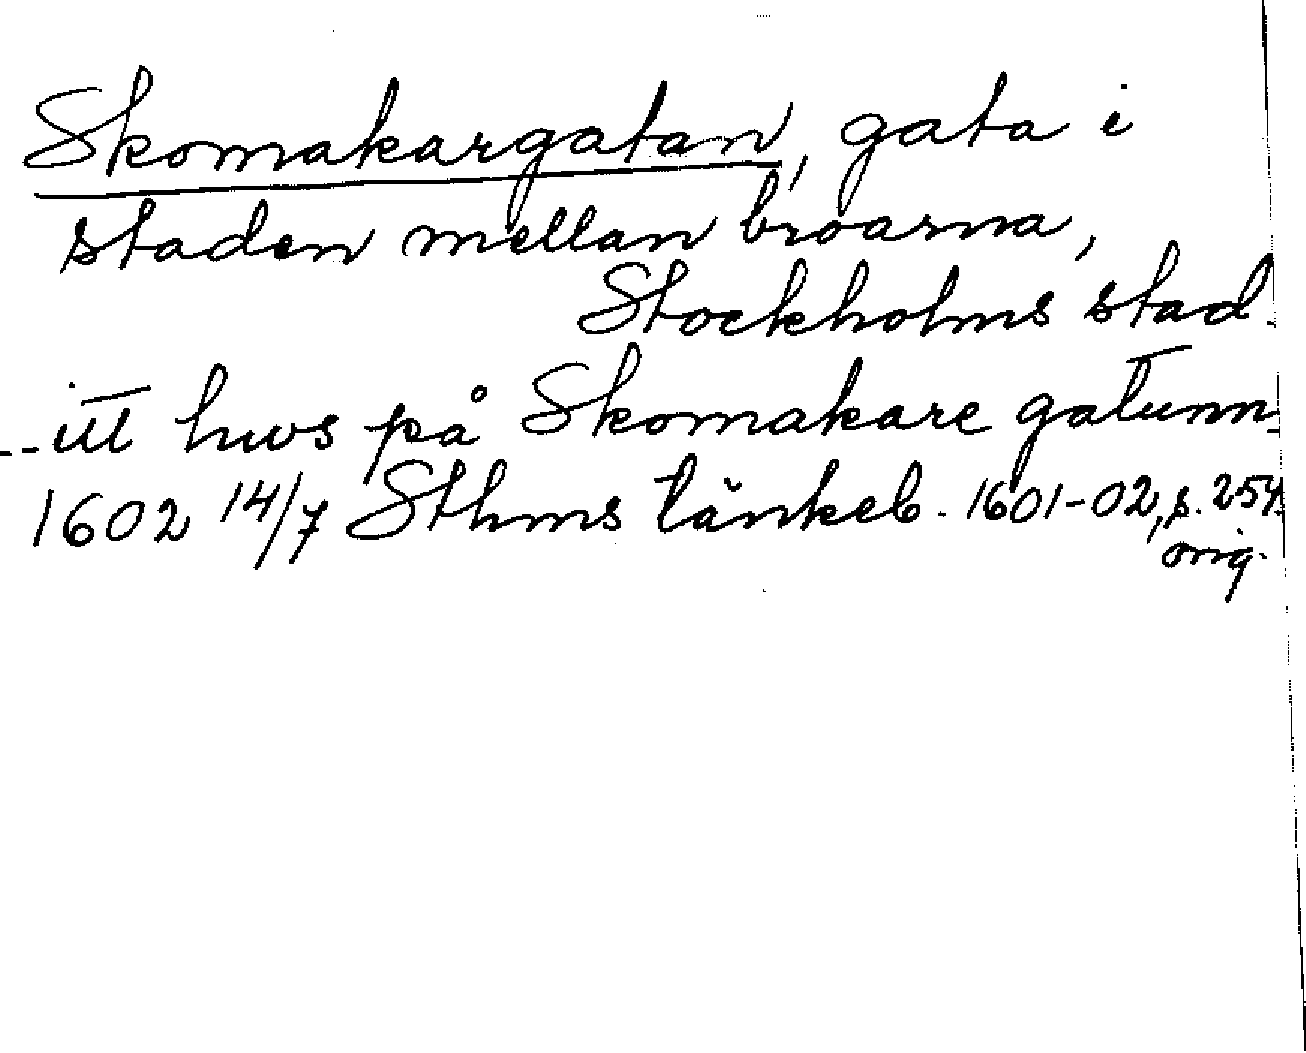 Skomakargatan, gata i
staden mellan broarna,
Stockholms stad.
--itt hws på Skomakare gatunn-
1602 14/7 Sthms tänkeb. 1601-02, s. 254.
orig.